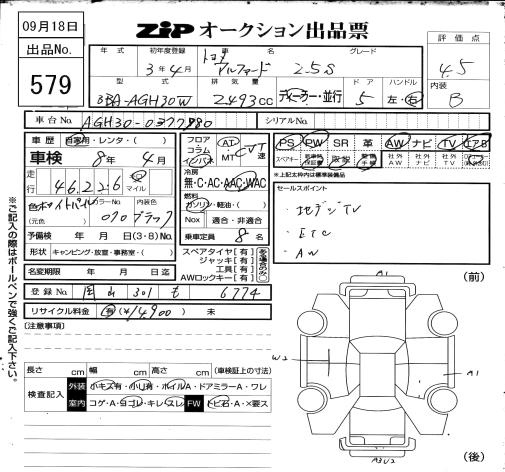 09月18日
出品No.
579
ZIP オークション出品票
評価点
4.5
内装
B
年式 初年度登録 車名 グレード
3年4月 トヨタ アルファード 2.5S
型式 排気量 ドア ハンドル
3BA-AGH30W 2493cc ディーラー・並行 5 左・右
車台No. AGH30-0377980 シリアルNo.
車歴 自家用・レンタ・( )
車検 8年 4月
走行 46,226 km マイル
色 ホワイトパール カラーNo. 070 内装色 ブラック
(元色)
予備検 年 月 (3・8) No.
形状 キャンピング・放塵・事務室・( )
名変期限 年 月 日迄
登録No. 岡山 301 も 6774
リサイクル料金 有(¥14,900) 未
フロア コラム インパネ AT MT CVT 速
冷房 無・C・AC・AAC・WAC
燃料 ガソリン・軽油・( )
Nox 適合・非適合
乗車定員 8名
スペアタイヤ[有]
ジャッキ[有]
工具[有]
AWロックキー[有]
多場合のみ○
PS PW SR 革 AW ナビ TV エアB
スペアキー 取説 整備手帳 社外AW 社外ナビ 社外TV
※上記太枠内は標準装備品
セールスポイント
・地デジTV
・ETC
・AW
[注意事項]
長さ cm 幅 cm 高さ cm (車検証上の寸法)
検査記入
外装 小キズ有・小凹有・ホイルA・ドアミラーA・ワレ
室内 コゲ・A・ヨゴレ・キレ・スレ FW トビ石・A・×要ス
(前)
A1
W2
A1
(後)
※ご記入の際はボールペンで強くご記入下さい。